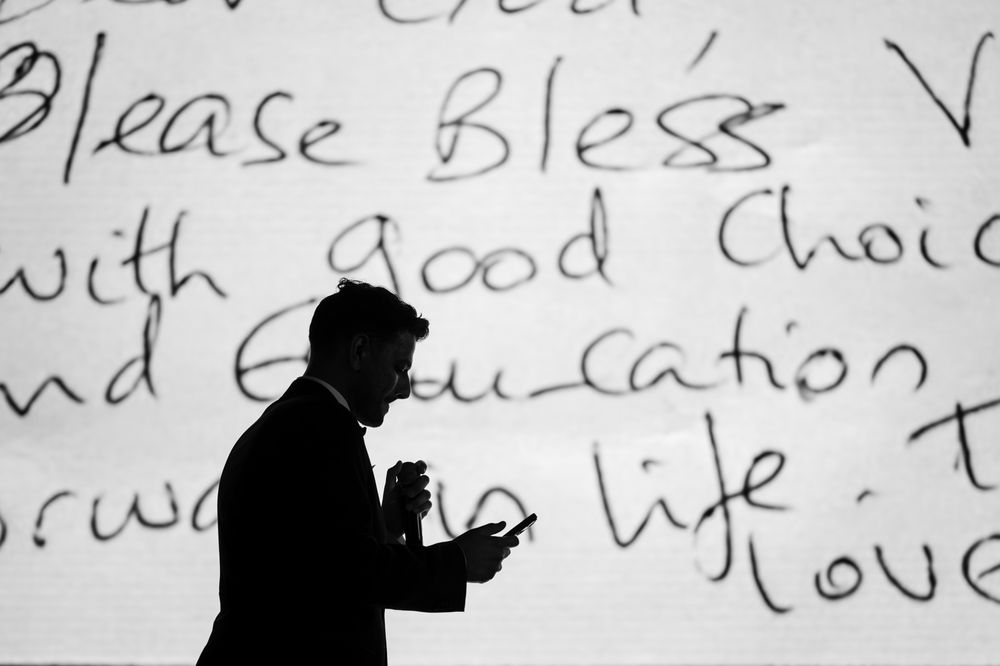 Please Bless
with Good Choic
nd Education
in life
love